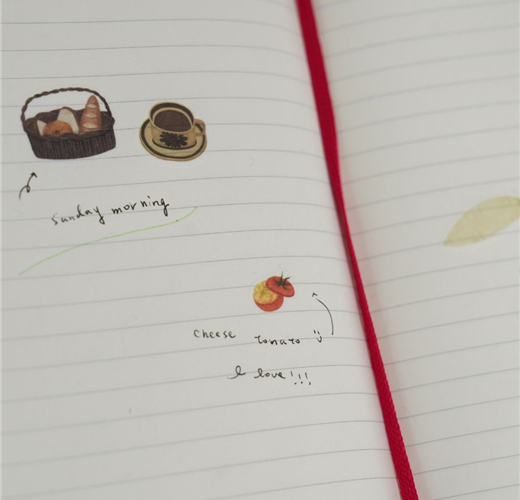 Sunday morning
cheese tomato
I love!!!